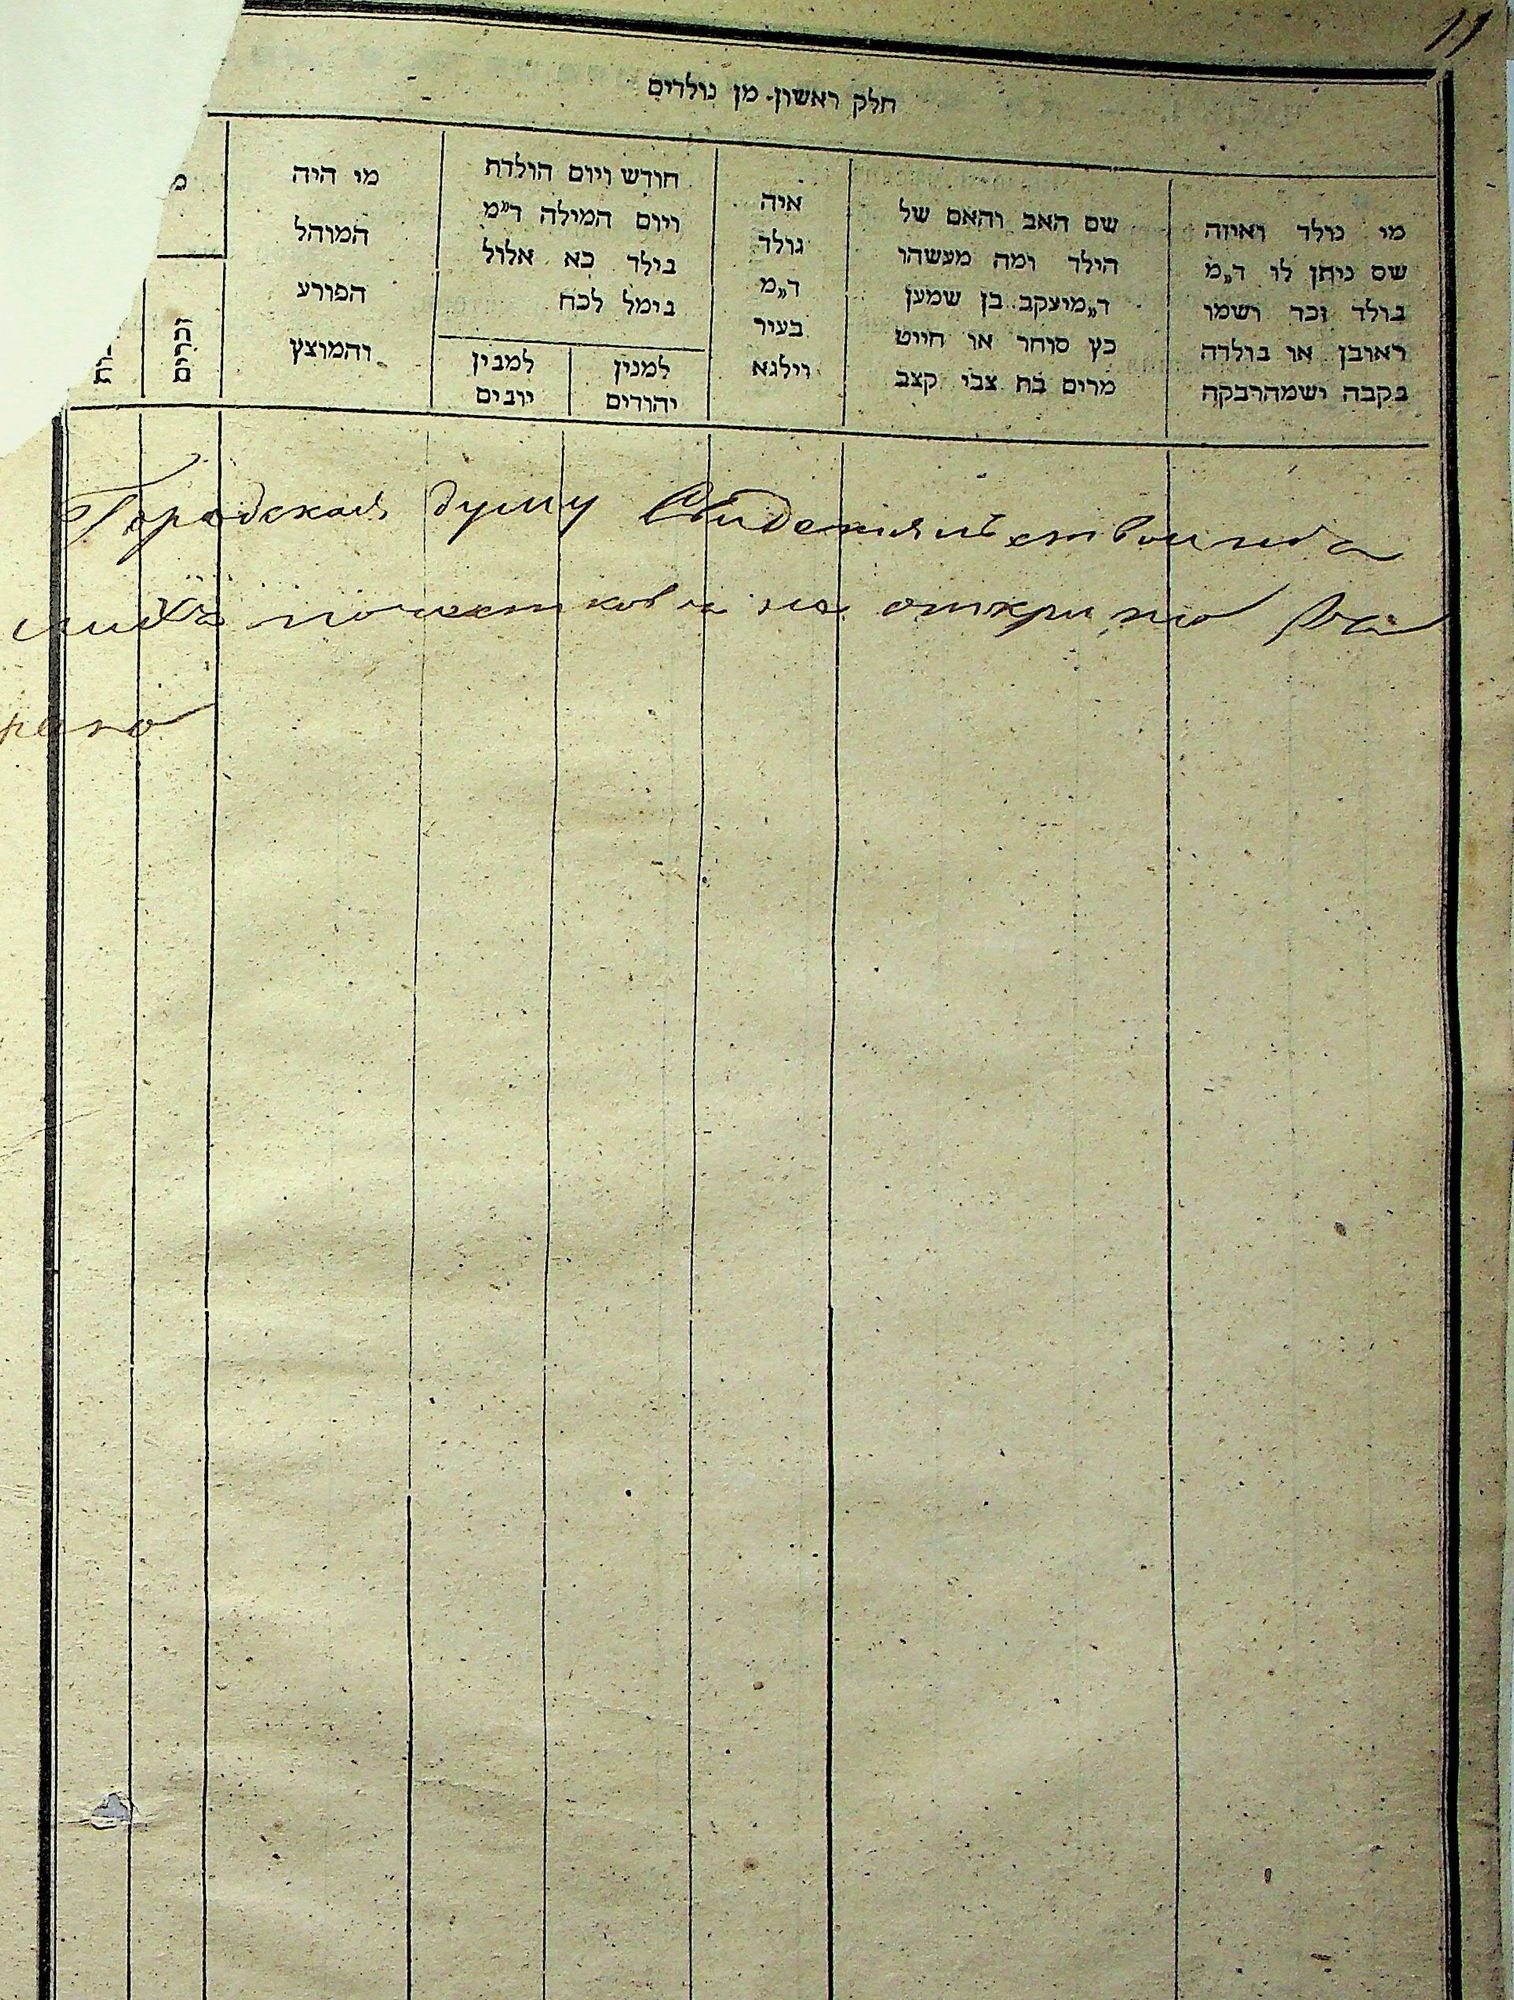 11
חלק ראשון מן נולדים
מי נולד ואיזה
שם ניתן לו ד״מ
נולד זכר ושמו
ראובן או נולדה
נקבה ושמה רבקה
שם האב והאם של
הילד ומה מעשהו
ד״מ יעקב בן שמעון
כץ סוחר או חייט
מרים בת צבי קצב
איה
נולד
ד״מ
בעיר
ווילנא
חודש ויום הולדת
ויום המילה ד״מ
נילד כא אלול
נימל לכח
למנין
יהודים
למנין
יונים
מי היה
המוהל
הפורע
והמוצץ
זכרים
Городская думу Свидетельство
на открито
рено